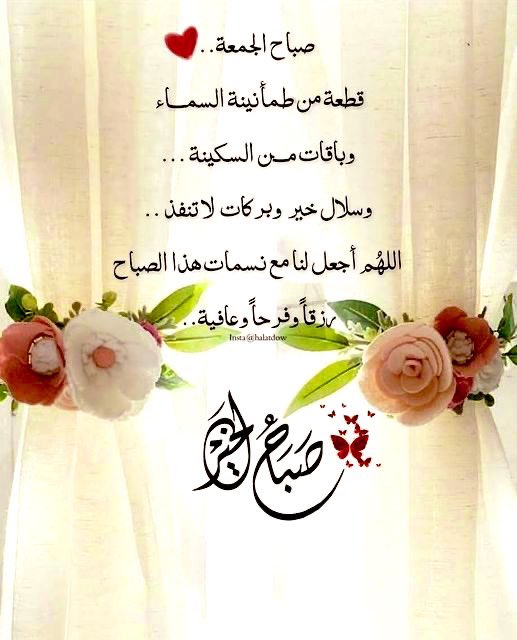 صباح الجمعة..
قطعة من طمأنينة السماء
وباقات من السكينة ...
وسلال خير وبركات لا تنفذ..
اللهُم أجعل لنا مع نسمات هذا الصباح
رزقاً وفرحاً وعافية..
Insta@halatdow
صَبَاحُ الخَيْرْ